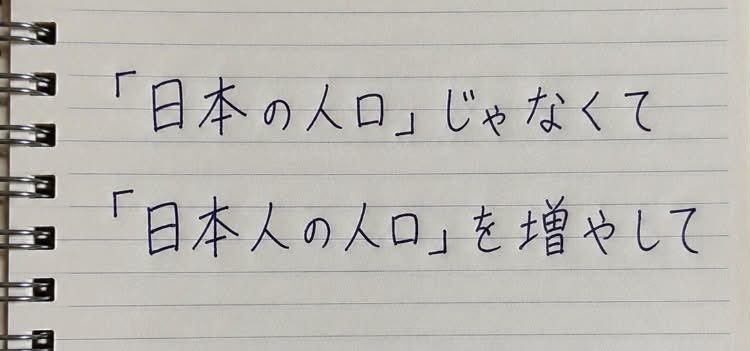 「日本の人口」じゃなくて
「日本人の人口」を増やして